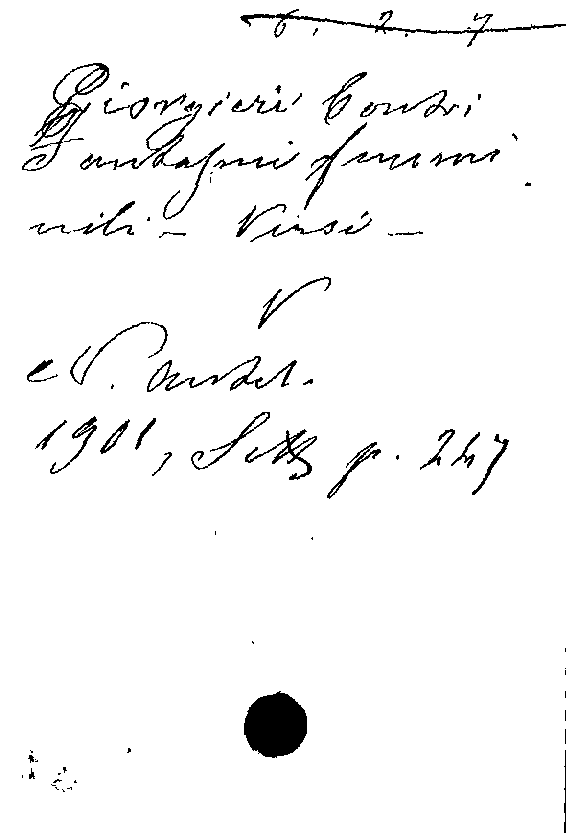 6. 2. 7
Giorgieri Contri
Fantasmi femmi
nili - Versi -
V
N. Antol.
1901, Sett p. 247